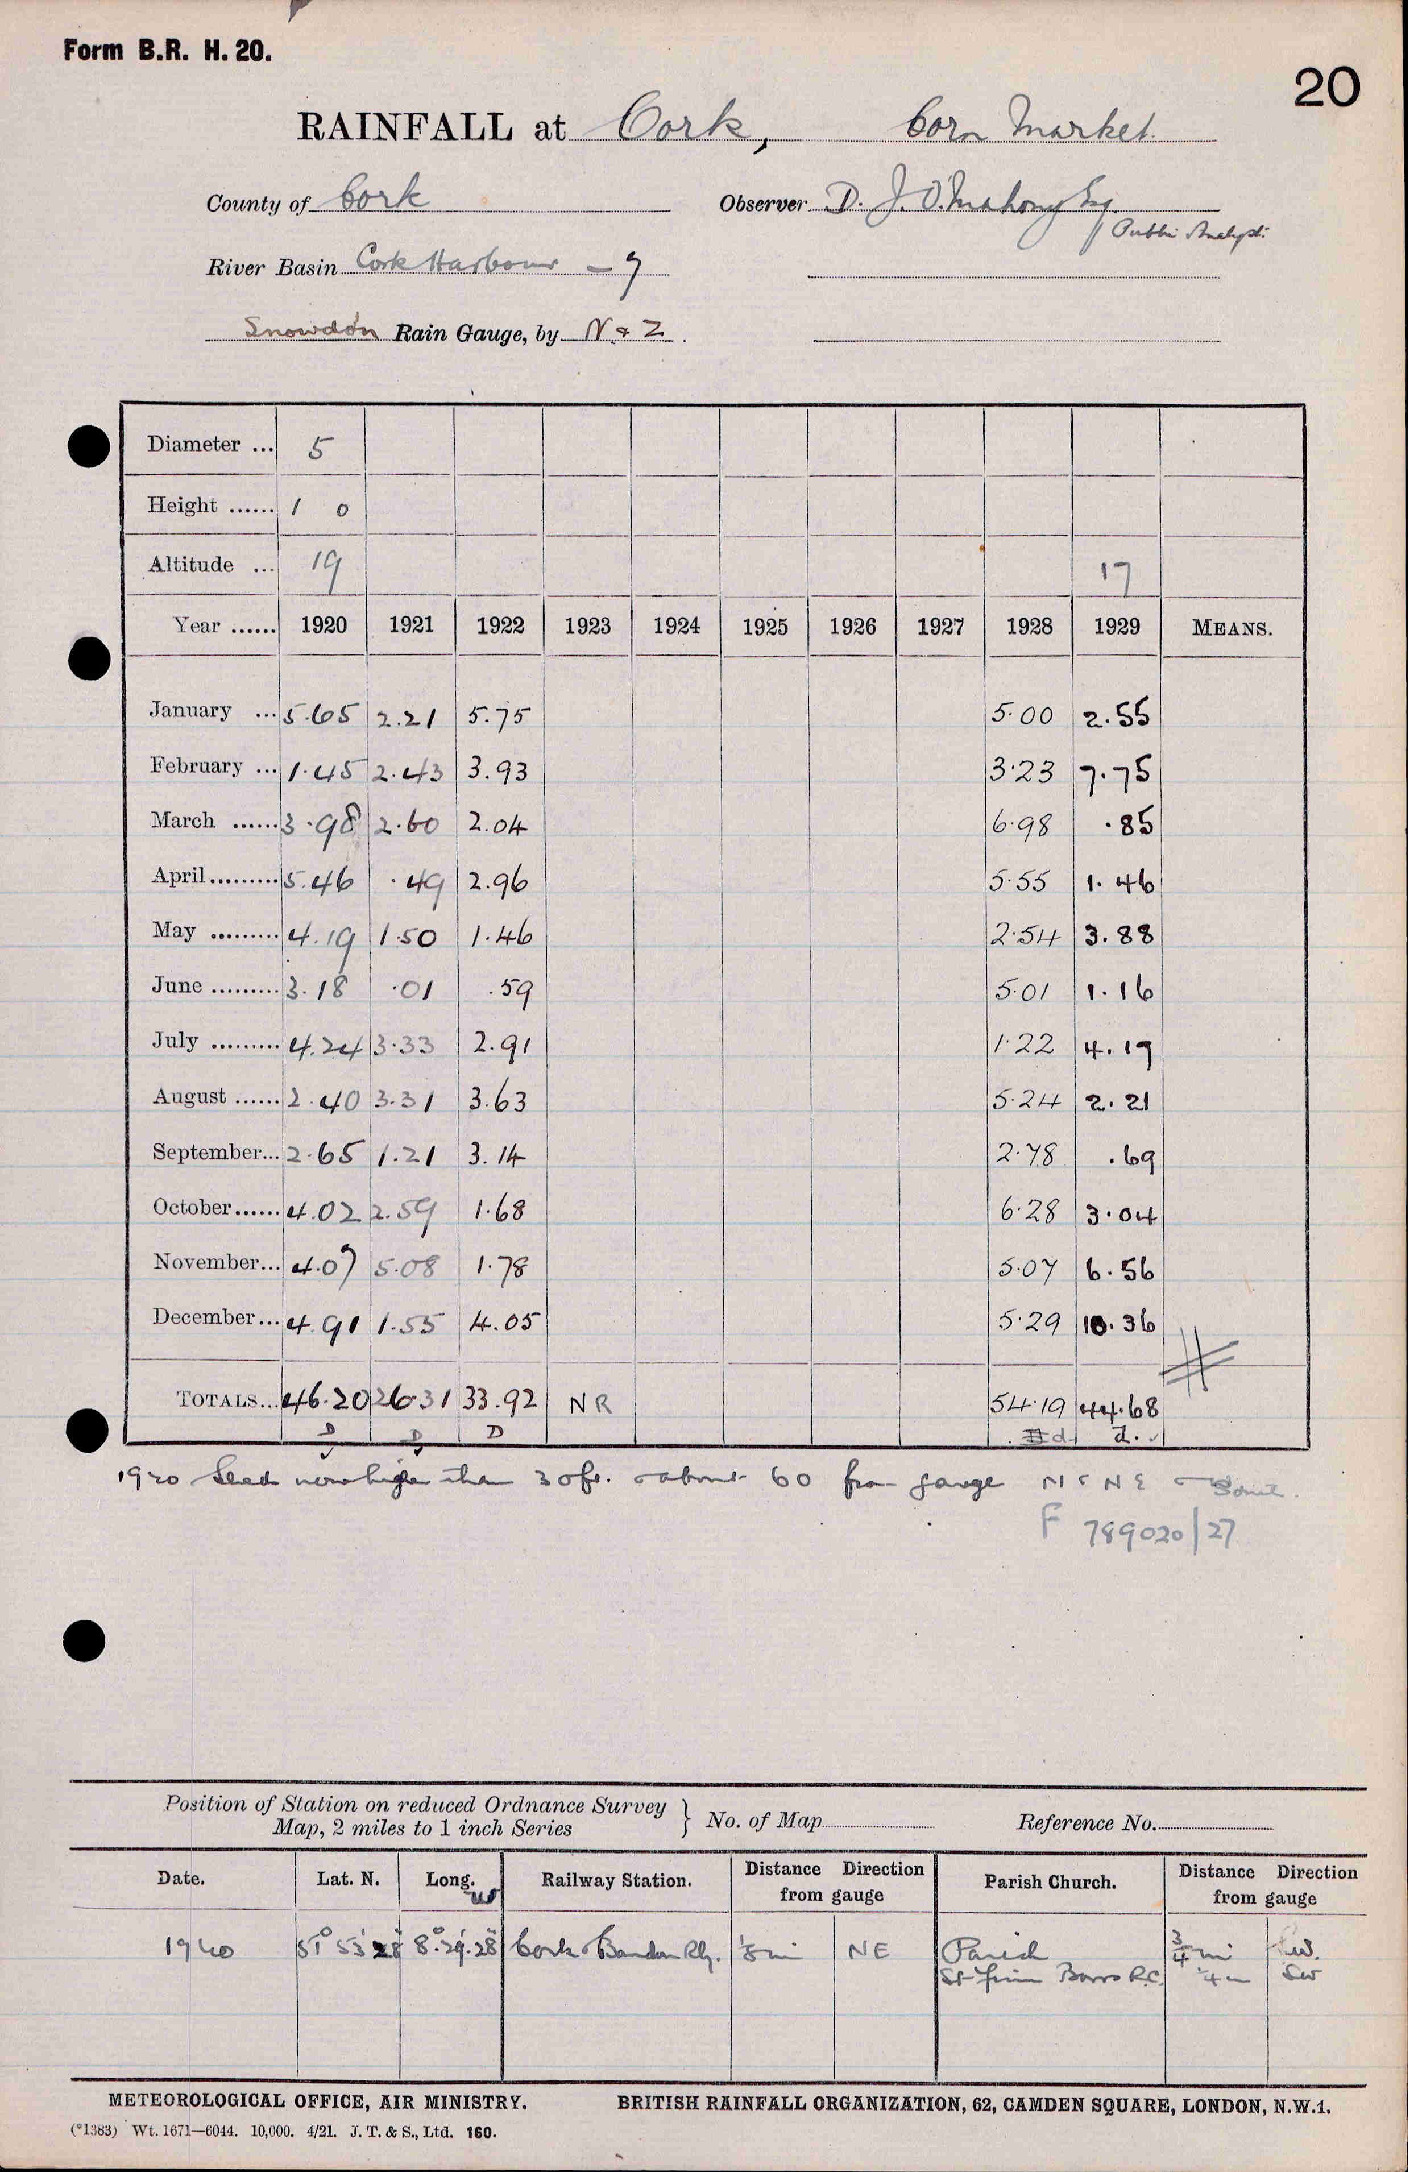 Form B.R. H. 20.
20
RAINFALL at Cork, Corn Market.
County of Cork Observer D. J. O'Mahony Esq.
Public Analyst
River Basin Cork Harbour – 7
Snowdon Rain Gauge, by N & Z.
Diameter ... 5
Height ...... 1 0
Altitude ... 19 17
Year ...... 1920 1921 1922 1923 1924 1925 1926 1927 1928 1929 MEANS.
January ... 5.65 2.21 5.75 5.00 2.55
February ... 1.45 2.43 3.93 3.23 7.75
March ...... 3.98 2.60 2.04 6.98 .85
April ......... 5.46 .49 2.96 5.55 1.46
May ......... 4.19 1.50 1.46 2.54 3.88
June ......... 3.18 .01 .59 5.01 1.16
July ......... 4.24 3.33 2.91 1.22 4.17
August ...... 2.40 3.31 3.63 5.24 2.21
September... 2.65 1.21 3.14 2.78 .69
October...... 4.02 2.59 1.68 6.28 3.04
November... 4.07 5.08 1.78 5.07 6.56
December... 4.91 1.55 4.05 5.29 10.36
TOTALS... 46.20 26.31 33.92 NR 54.19 44.68
D D D d. d. ✓
1920 higher than 30 ft. about 60 from gauge N & NE
F 789020/27
Position of Station on reduced Ordnance Survey
Map, 2 miles to 1 inch Series } No. of Map Reference No.
Date. Lat. N. Long. W Railway Station. Distance Direction from gauge Parish Church. Distance Direction from gauge
1920 51° 53' 28" 8° 29' 28" Cork & Bandon Rly. 1/8 mi NE Parish 3/4 mi
St Finn Barrs R.C. 1/4 m SW
METEOROLOGICAL OFFICE, AIR MINISTRY. BRITISH RAINFALL ORGANIZATION, 62, CAMDEN SQUARE, LONDON, N.W.1.
(*1383) Wt. 1671—6044. 10,000. 4/21. J. T. & S., Ltd. 160.